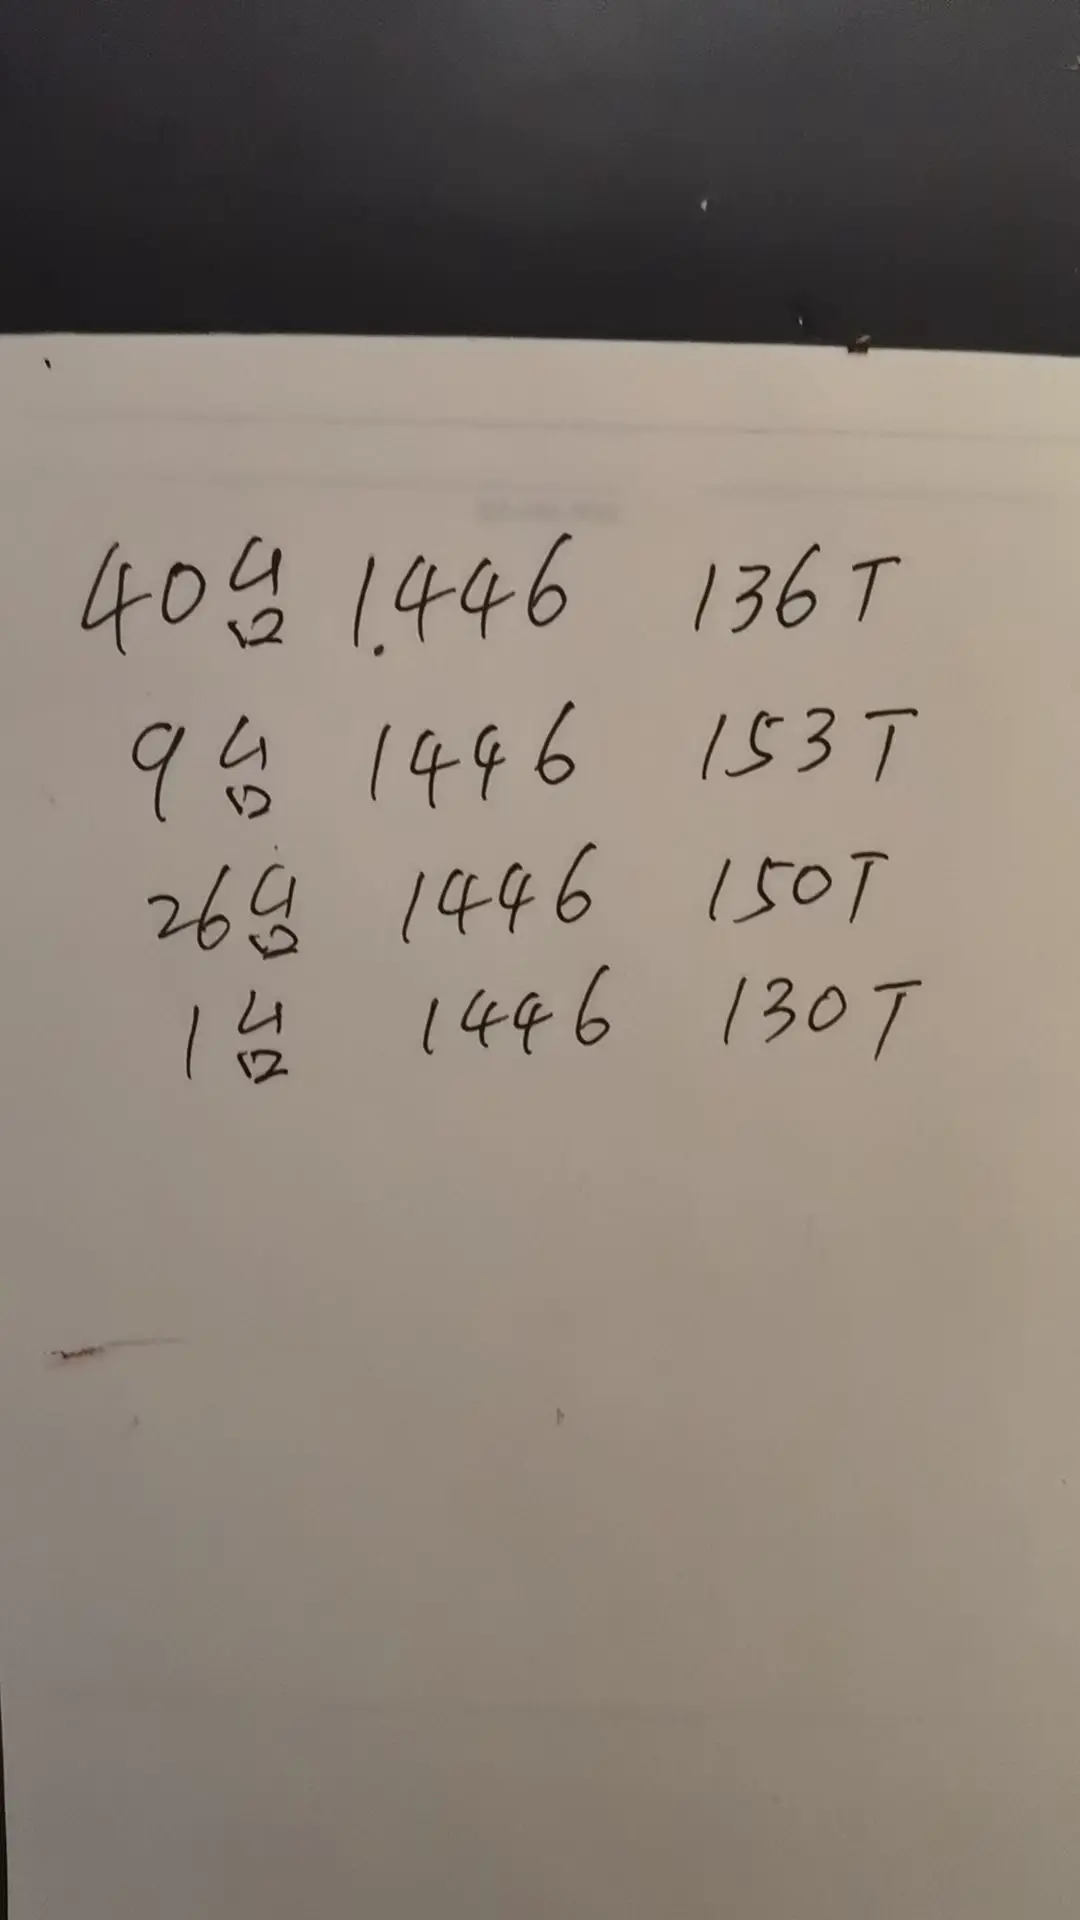 40심 1.446 136T
9심 1446 153T
26심 1446 150T
1심 1446 130T